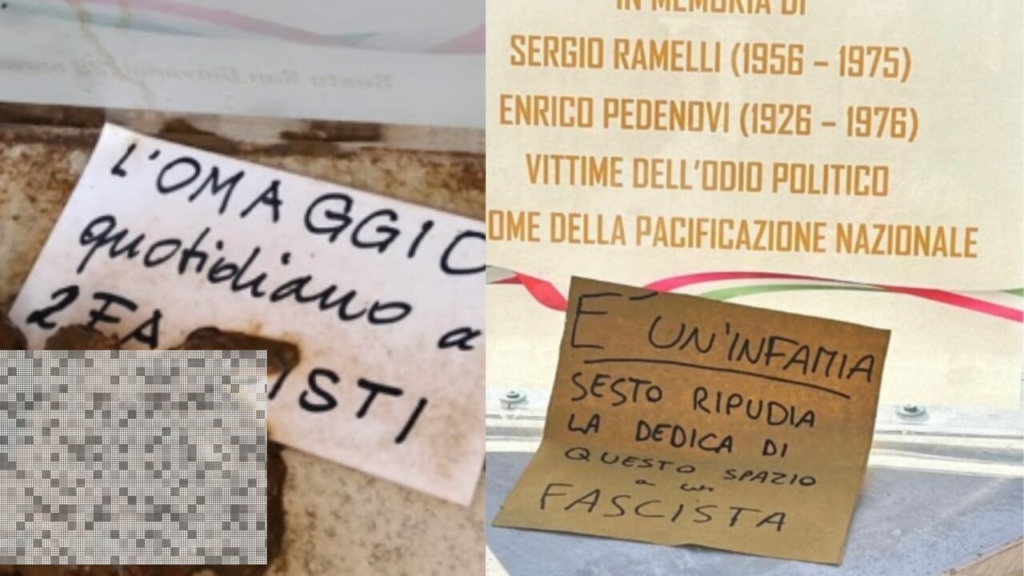 L'OMAGGIO
quotidiano a
2 FA
ISTI
IN MEMORIA DI
SERGIO RAMELLI (1956 – 1975)
ENRICO PEDENOVI (1926 – 1976)
VITTIME DELL'ODIO POLITICO
OME DELLA PACIFICAZIONE NAZIONALE
E' UN'INFAMIA
SESTO RIPUDIA
LA DEDICA DI
QUESTO SPAZIO
a un
FASCISTA